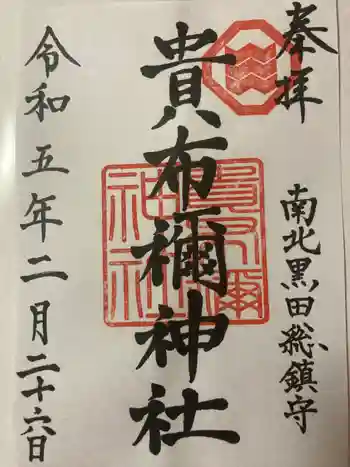 奉拝
南北黒田総鎮守
貴布禰神社
貴布禰神社
令和五年二月二十六日